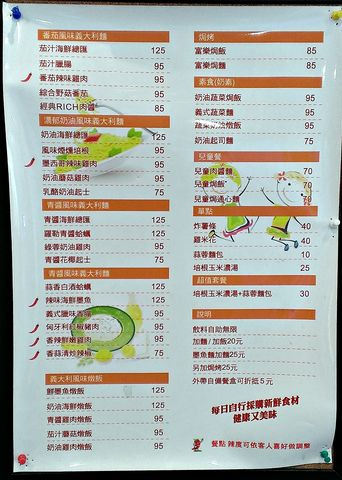 番茄風味義大利麵
茄汁海鮮總匯 125
茄汁臘腸 95
番茄辣味雞肉 95
綜合野菇番茄 95
經典RICH肉醬 85
濃郁奶油風味義大利麵
奶油海鮮總匯 125
風味煙燻培根 95
墨西哥辣味雞肉 95
奶油蘑菇雞肉 95
乳酪奶油起士 75
青醬風味義大利麵
青醬海鮮總匯 125
羅勒青醬蛤蠣 95
綠蓉奶油雞肉 95
青醬花椰起士 75
清醬風味義大利麵
蒜香白酒蛤蠣 95
辣味海鮮墨魚 95
義式臘味香腸 95
匈牙利紅椒豬肉 95
香辣鮮嫩雞肉 95
蒜苗清炒辣椒 75
義大利風味燉飯
鮮墨魚燉飯 95
奶油海鮮燉飯 95
青醬雞肉燉飯 95
茄汁蘑菇燉飯 95
奶油雞肉燉飯 95
焗烤
富樂焗飯 85
富樂焗麵 85
素食(奶素)
奶油蔬菜焗飯 95
義式蔬菜麵 95
蔬菜奶油燉飯 95
奶油起司麵 75
兒童餐
兒童肉醬麵 70
兒童焗飯 70
兒童焗通心麵 70
單點
炸薯條 40
雞米花 40
蒜蓉麵包 10
培根玉米濃湯 25
超值套餐
培根玉米濃湯+蒜蓉麵包 30
說明
飲料自助無限
加麵/加飯20元
墨魚麵加麵25元
另加焗烤25元
外帶自備餐盒可折抵5元
每日自行採購新鮮食材
健康又美味
餐點 辣度可依客人喜好做調整